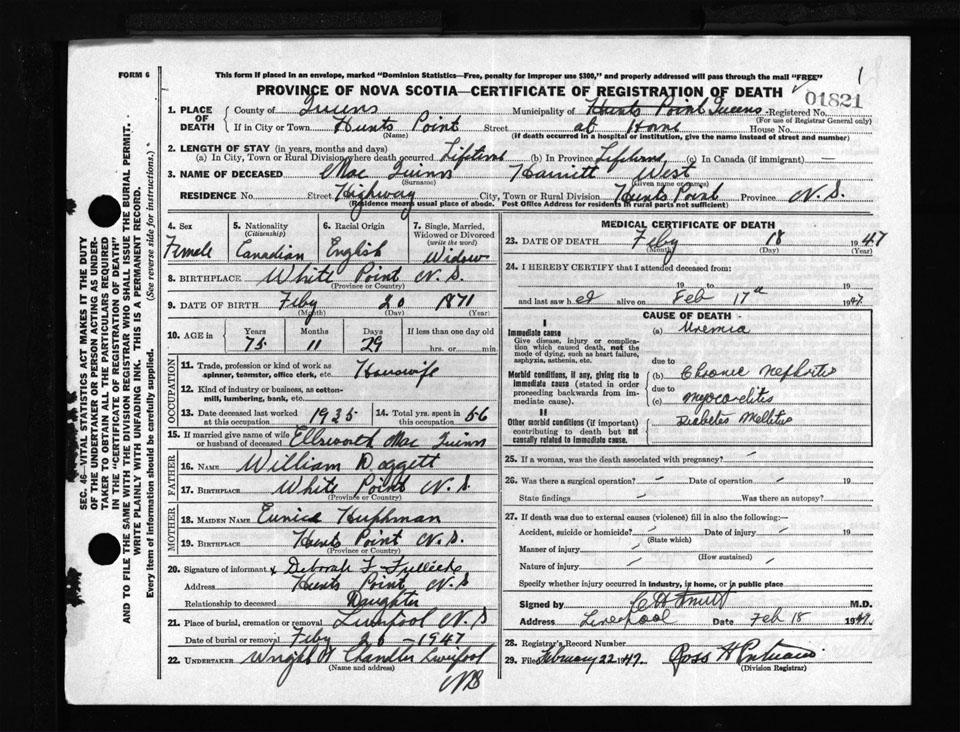 FORM 6
This form if placed in an envelope, marked "Dominion Statistics—Free, penalty for improper use $300," and properly addressed will pass through the mail "FREE"
1
PROVINCE OF NOVA SCOTIA—CERTIFICATE OF REGISTRATION OF DEATH
01821
1. PLACE OF DEATH
County of Queens Municipality of Hunts Point Queens Registered No.
(For use of Registrar General only)
If in City or Town Hunts Point Street at Home House No.
(Name) (If death occurred in a hospital or institution, give the name instead of street and number)
2. LENGTH OF STAY (in years, months and days)
(a) In City, Town or Rural Division where death occurred Lifetime (b) In Province Lifetime, (c) In Canada (if immigrant) —
3. NAME OF DECEASED Mac Quinn Harriett West
(Surname) (Given name or names)
RESIDENCE No. Street Highway City, Town or Rural Division Hunts Point Province N.S.
(Residence means usual place of abode. Post Office Address for residents in rural parts not sufficient)
4. Sex
Female
5. Nationality
(Citizenship)
Canadian
6. Racial Origin
English
7. Single, Married, Widowed or Divorced
(write the word)
Widow
8. BIRTHPLACE White Point N.S.
(Province or Country)
9. DATE OF BIRTH Feby 20 1871
(Month) (Day) (Year)
10. AGE in
Years Months Days If less than one day old
75 11 29 hrs. or min.
OCCUPATION
11. Trade, profession or kind of work as spinner, teamster, office clerk, etc. Housewife
12. Kind of industry or business, as cotton-mill, lumbering, bank, etc.
13. Date deceased last worked at this occupation 1935
14. Total yrs. spent in this occupation 56
15. If married give name of wife or husband of deceased Ellsworth Mac Quinn
FATHER
16. NAME William Doggett
17. BIRTHPLACE White Point N.S.
(Province or Country)
MOTHER
18. MAIDEN NAME Eunice Huphman
19. BIRTHPLACE Hunts Point N.S.
(Province or Country)
20. Signature of informant x Deborah F.
Address Hunts Point N.S
Relationship to deceased Daughter
21. Place of burial, cremation or removal Liverpool N.S
Date of burial or removal Feby 20 - 1947
22. UNDERTAKER Wright H Chandler Liverpool
(Name and address)
NS
MEDICAL CERTIFICATE OF DEATH
23. DATE OF DEATH Feby 18 1947
(Month) (Day) (Year)
24. I HEREBY CERTIFY that I attended deceased from:
19 to 19
and last saw her alive on Feb 17th 1947.
CAUSE OF DEATH
I
Immediate cause (a) Uremia
Give disease, injury or complication which caused death, not the mode of dying, such as heart failure, asphyxia, asthenia, etc.
due to
Morbid conditions, if any, giving rise to immediate cause (stated in order proceeding backwards from immediate cause).
(b) Chronic Nephritis
due to
(c) Myocarditis
II
Other morbid conditions (if important) contributing to death but not causally related to immediate cause.
Diabetes Mellitus
25. If a woman, was the death associated with pregnancy? —
26. Was there a surgical operation? — Date of operation — 19
State findings — Was there an autopsy?
27. If death was due to external causes (violence) fill in also the following:—
Accident, suicide or homicide? — Date of injury — 19
(State which)
Manner of injury —
(How sustained)
Nature of injury —
Specify whether injury occurred in industry, in home, or in public place
Signed by M.D.
Address Liverpool Date Feb 18 1947.
28. Registrar's Record Number
29. Filed February 22 1947. Ross H
(Division Registrar)
SEC. 46—VITAL STATISTICS ACT MAKES IT THE DUTY
OF THE UNDERTAKER OR PERSON ACTING AS UNDER-
TAKER TO OBTAIN ALL THE PARTICULARS REQUIRED
IN THE "CERTIFICATE OF REGISTRATION OF DEATH"
AND TO FILE THE SAME WITH THE DIVISION REGISTRAR WHO SHALL ISSUE THE BURIAL PERMIT.
WRITE PLAINLY WITH UNFADING INK. THIS IS A PERMANENT RECORD.
Every item of information should be carefully supplied. (See reverse side for instructions.)